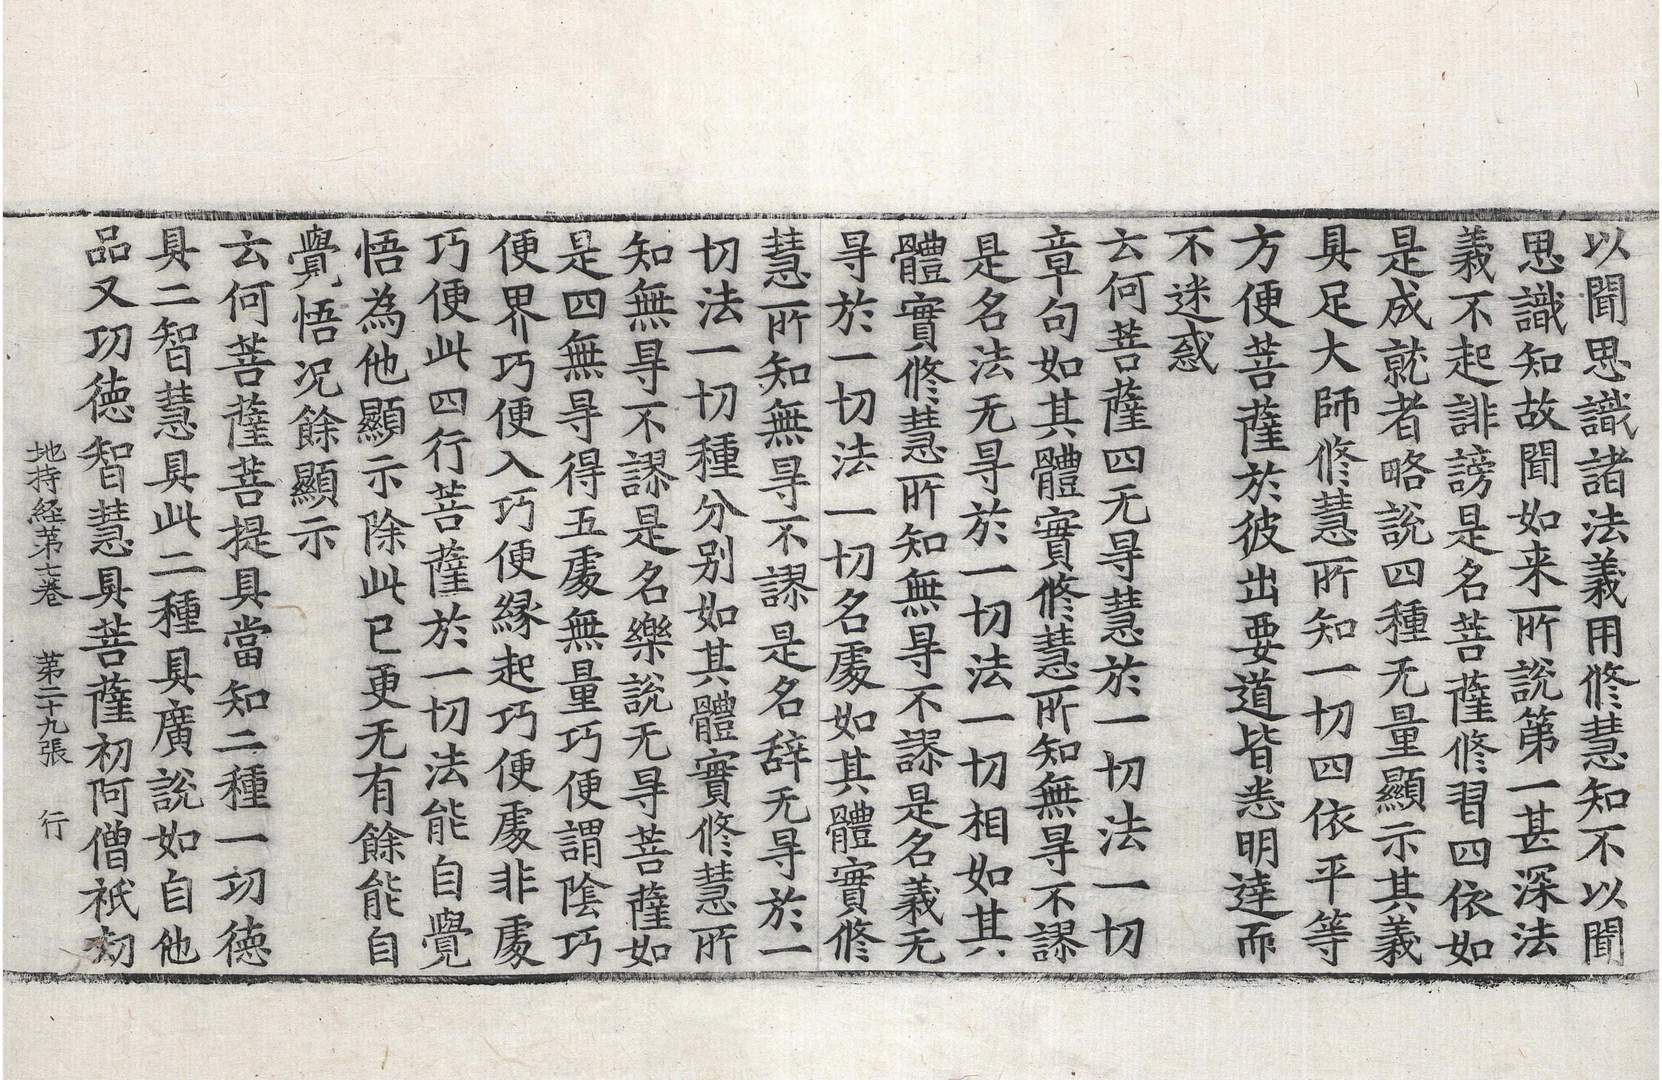 以聞思識諸法義用修慧知不以聞
思識知故聞如来所說第一甚深法
義不起誹謗是名菩薩修習四依如
是成就者略說四種无量顯示其義
具足大師修慧所知一切四依平等
方便菩薩於彼出要道皆悉明達而
不迷惑
云何菩薩四无㝵慧於一切法一切
章句如其體實修慧所知無㝵不謬
是名法无㝵於一切法一切相如其
體實修慧所知無㝵不謬是名義无
㝵於一切法一切名處如其體實修
慧所知無㝵不謬是名辞无㝵於一
切法一切種分别如其體實修慧所
知無㝵不謬是名樂說无㝵菩薩如
是四無㝵得五處無量巧便謂陰巧
便界巧便入巧便緣起巧便處非處
巧便此四行菩薩於一切法能自覺
悟為他顯示除此已更无有餘能自
覺悟况餘顯示
云何菩薩菩提具當知二種一功德
具二智慧具此二種具廣說如自他
品又功德智慧具菩薩初阿僧祇劫
地持経第七卷　第二十九張　行